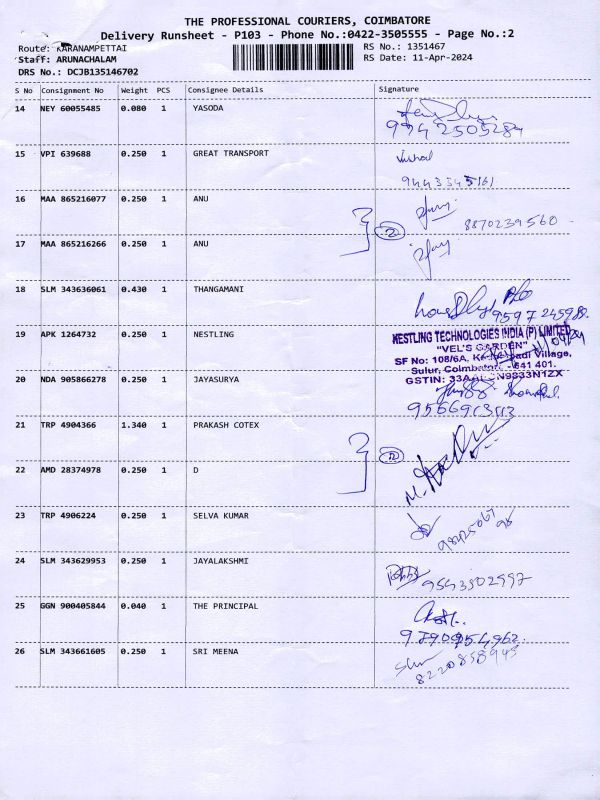 THE PROFESSIONAL COURIERS, COIMBATORE
Delivery Runsheet - P103 - Phone No.:0422-3505555 - Page No.:2
Route: KARANAMPETTAI RS No.: 1351467
Staff: ARUNACHALAM RS Date: 11-Apr-2024
DRS No.: DCJB135146702
S No Consignment No Weight PCS Consignee Details Signature
14 NEY 60055485 0.080 1 YASODA
9942505284
15 VPI 639688 0.250 1 GREAT TRANSPORT Vishal
9443545161
16 MAA 865216077 0.250 1 ANU
2 8870239560
17 MAA 865216266 0.250 1 ANU
18 SLM 343636061 0.430 1 THANGAMANI
9597245988
19 APK 1264732 0.250 1 NESTLING NESTLING TECHNOLOGIES INDIA (P) LIMITED
"VEL'S GARDEN"
SF No: 108/6A, Village,
Sulur, Coimbatore - 641 401.
GSTIN:
20 NDA 905866278 0.250 1 JAYASURYA
21 TRP 4904366 1.340 1 PRAKASH COTEX
22 AMD 28374978 0.250 1 D
23 TRP 4906224 0.250 1 SELVA KUMAR
24 SLM 343629953 0.250 1 JAYALAKSHMI
9543302997
25 GGN 900405844 0.040 1 THE PRINCIPAL
9790954962
26 SLM 343661605 0.250 1 SRI MEENA
8220858945